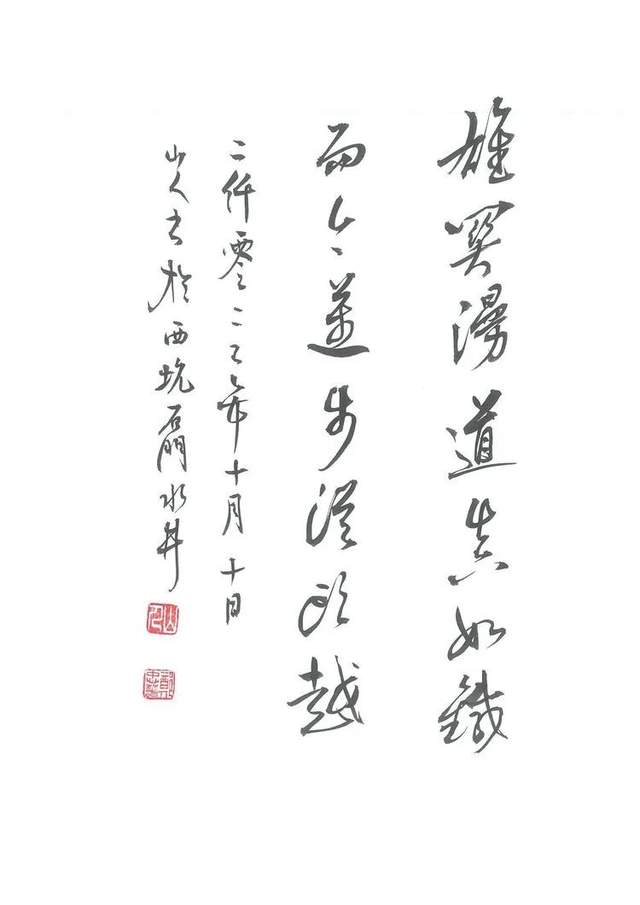 雄關漫道真如鐵
而今邁步從頭越
二仟零二二年十月十日
山人書於西坑水井
山人